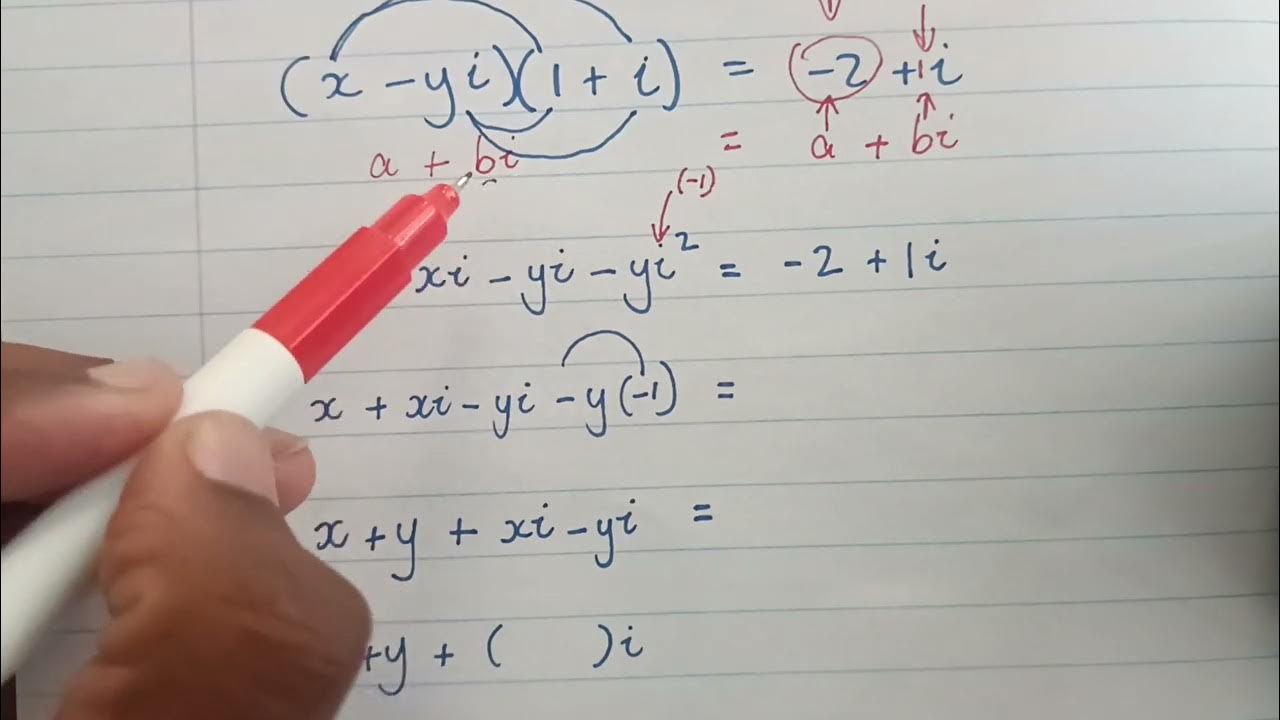 (x - yi)(1 + i) = (-2) + 1i
a + bi = a + bi
(-1)
xi - yi - yi² = -2 + 1i
x + xi - yi - y(-1) =
x + y + xi - yi =
+y + ( )i